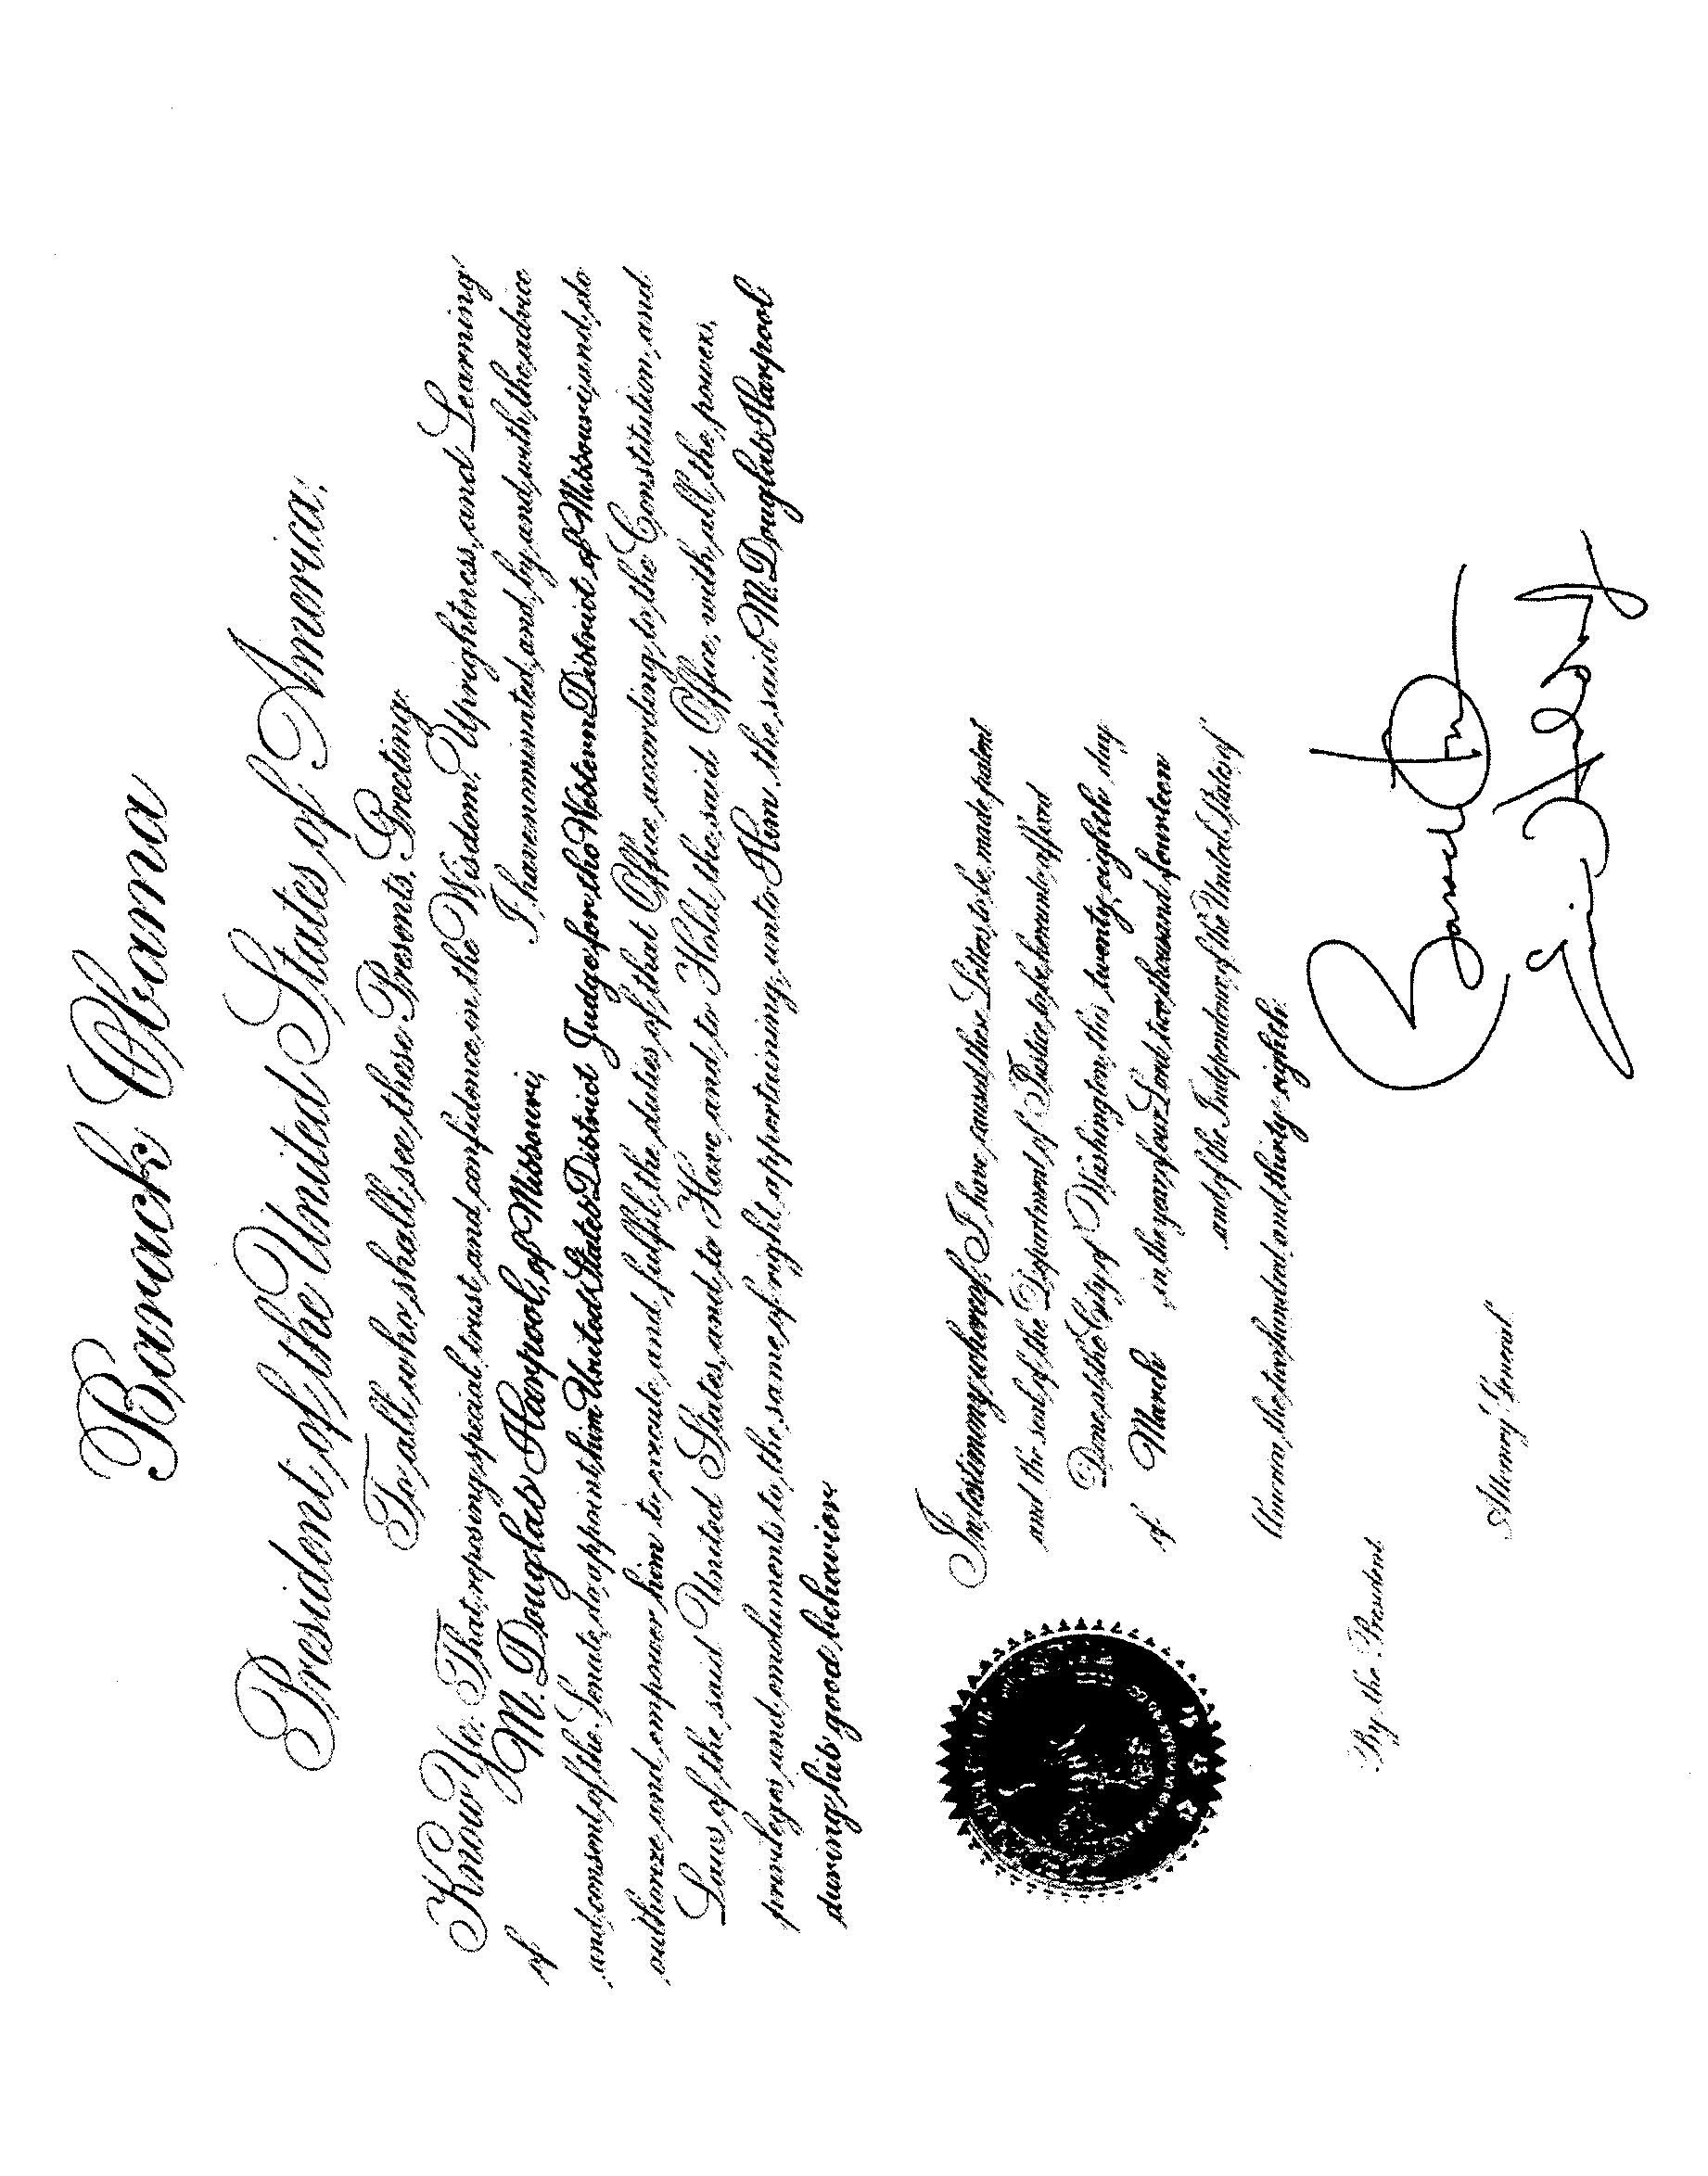 Barack Obama
President of the United States of America.
To all who shall see these Presents, Greeting:
Know Ye: That reposing special trust and confidence in the Wisdom, Uprightness, and Learning
of M. Douglas Harpool, of Missouri, I have nominated, and, by and with the advice
and consent of the Senate, do appoint him United States District Judge for the Western District of Missouri and do
authorize and empower him to execute and fulfil the duties of that Office according to the Constitution and
Laws of the said United States, and to Have and to Hold the said Office, with all the powers,
privileges and emoluments to the same of right appertaining, unto Him the said M. Douglas Harpool
during his good behavior
In testimony whereof, I have caused these Letters to be made patent
and the seal of the Department of Justice to be hereunto affixed
Done at the City of Washington this twenty eighth day
of March in the year of our Lord two thousand fourteen
and of the Independence of the United States of
America the two hundred and thirty-eighth.
By the President
Attorney General